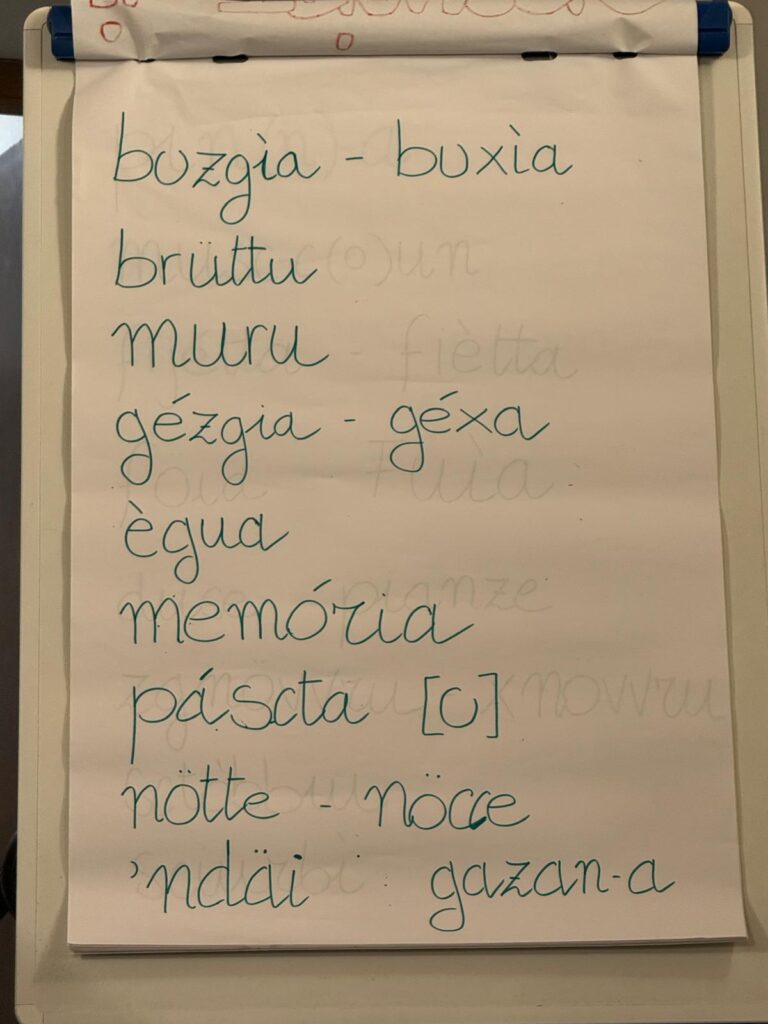 buzgìa - buxìa
brüttu
muru
gézgia - géxa
ègua
memória
páscta [c]
nötte - nöcce
'ndäi gazan-a